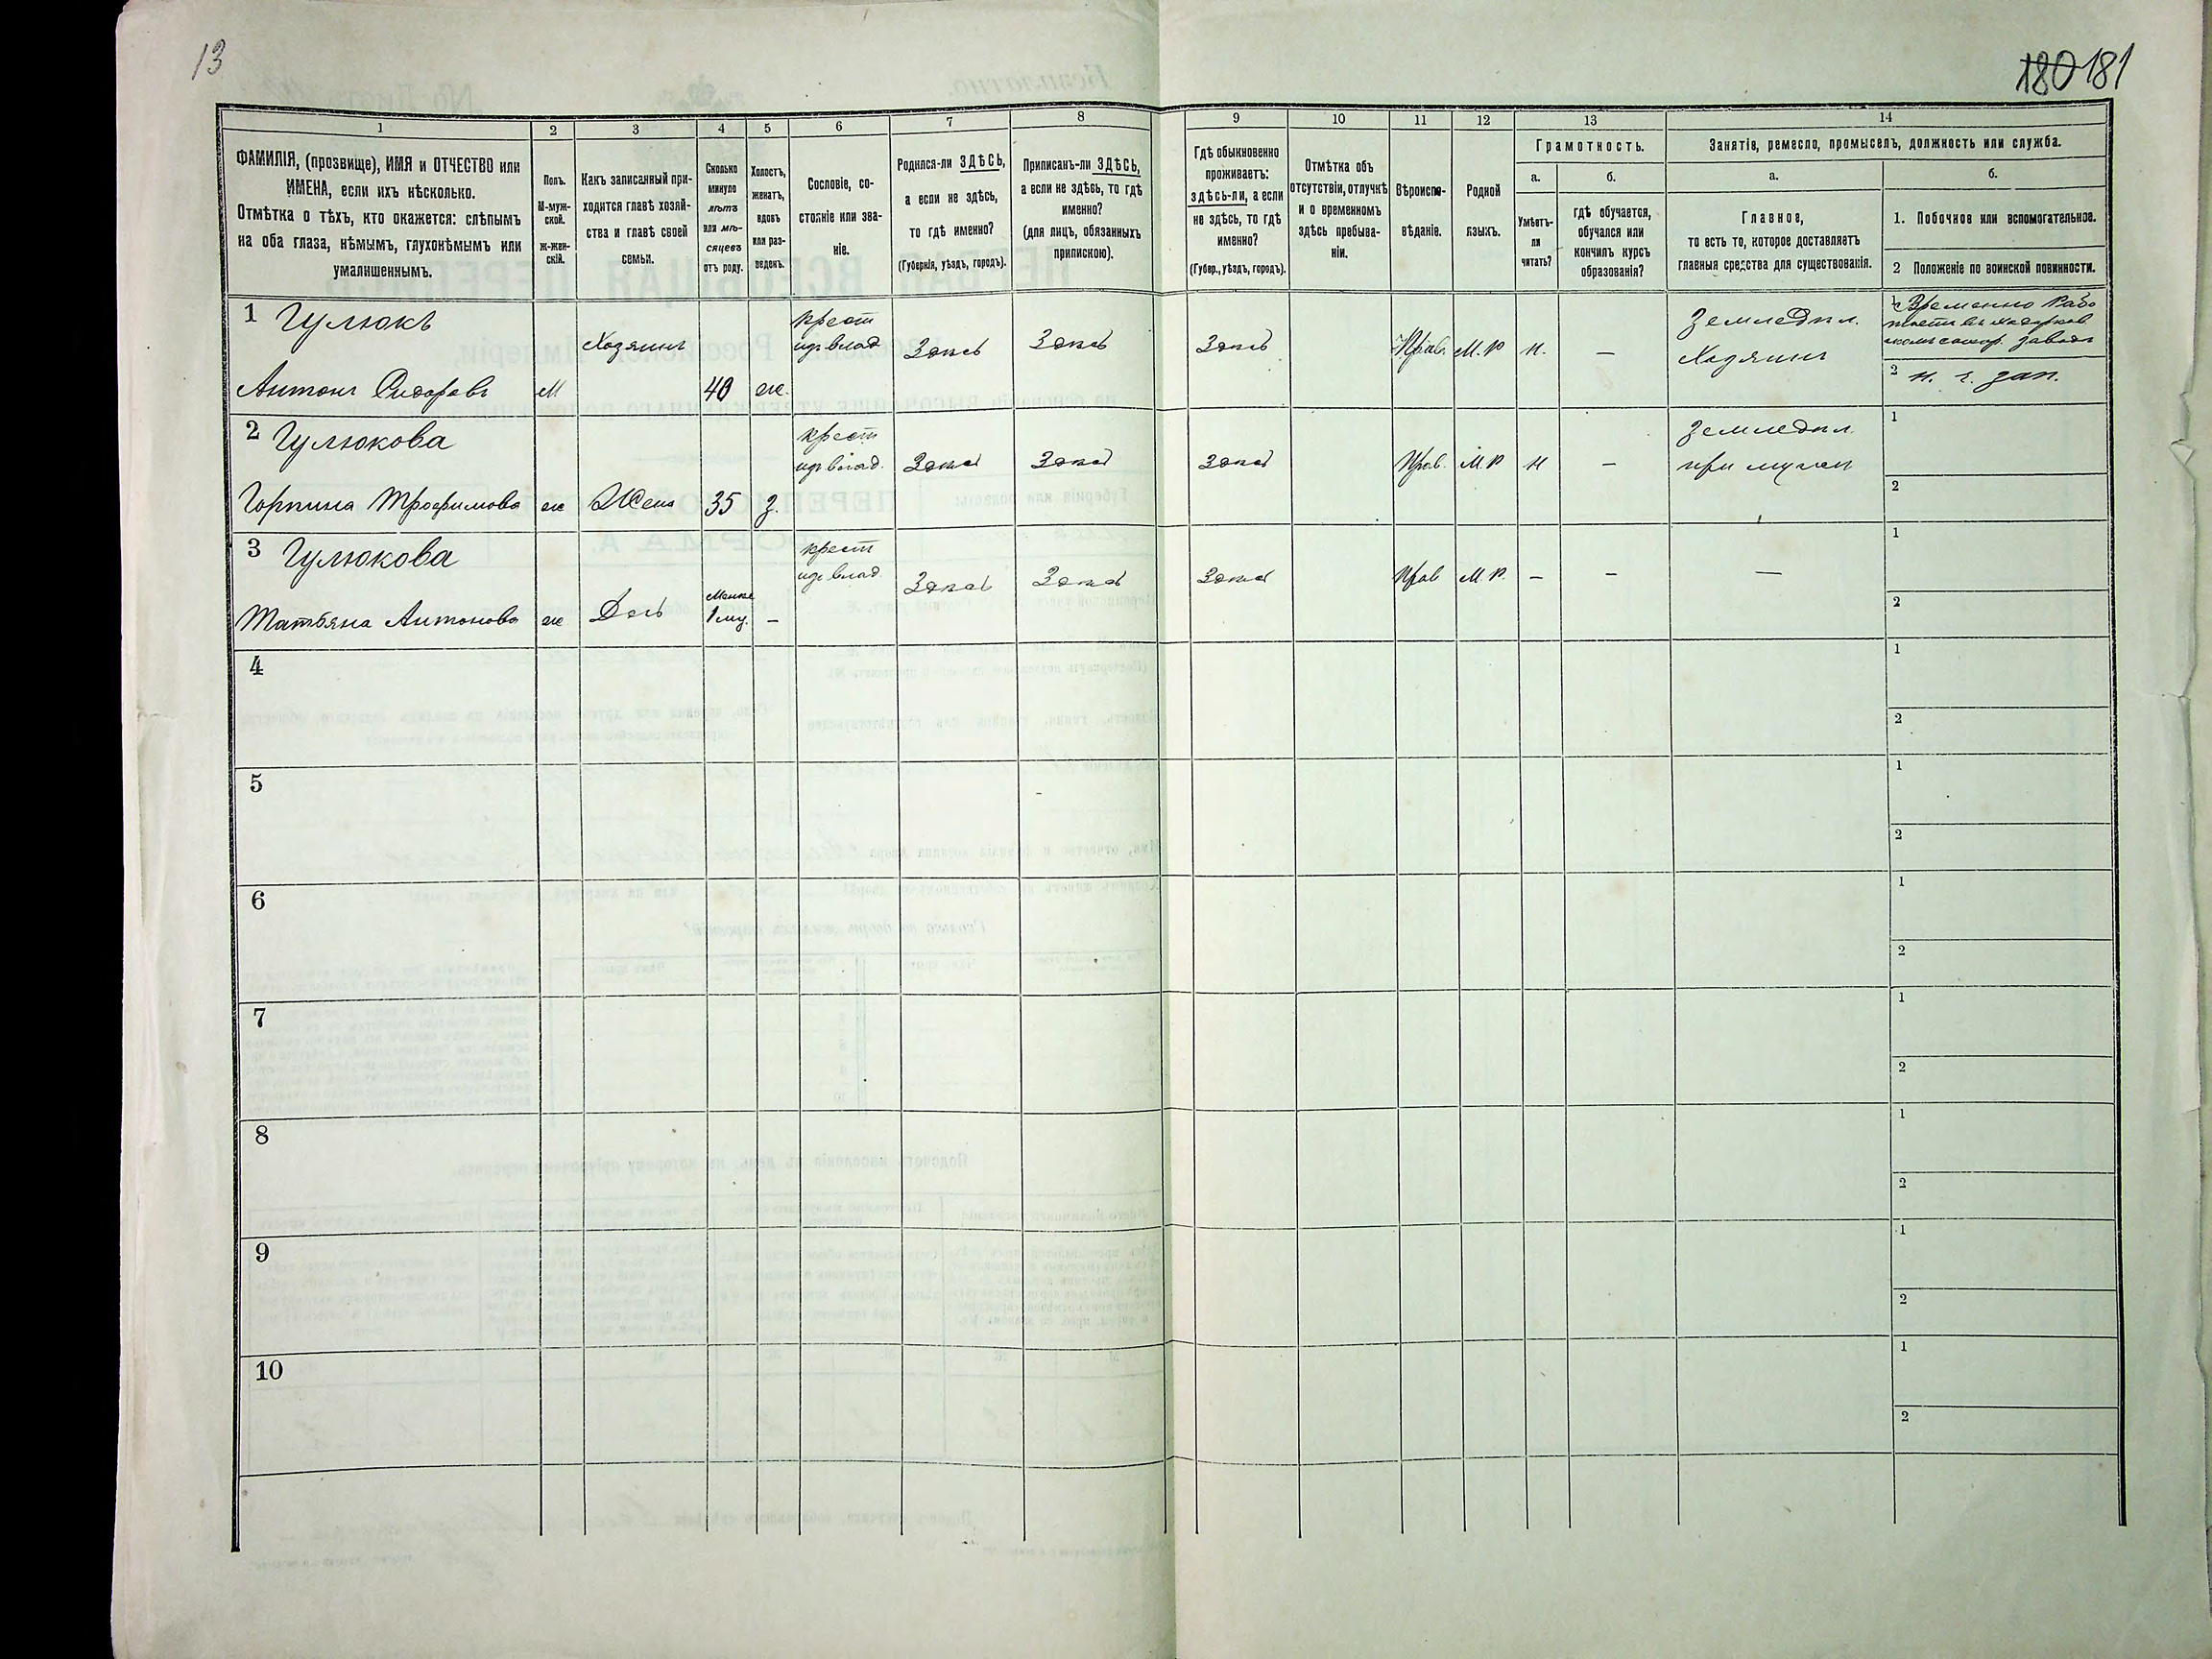 13
180 181
1
2
3
4
5
6
7
8
9
10
11
12
13
14
ФАМИЛІЯ, (прозвище), ИМЯ и ОТЧЕСТВО или
ИМЕНА, если ихъ нѣсколько.
Отмѣтка о тѣхъ, кто окажется: слѣпымъ
на оба глаза, нѣмымъ, глухонѣмымъ или
умалишеннымъ.
Полъ.
М-муж-
ской.
ж-жен-
скій.
Какъ записанный при-
ходится главѣ хозяй-
ства и главѣ своей
семьи.
Сколько
минуло
лѣтъ
или мѣ-
сяцевъ
отъ роду.
Холостъ,
женатъ,
вдовъ
или раз-
веденъ.
Сословіе, со-
стояніе или зва-
ніе.
Родился-ли ЗДѢСЬ,
а если не здѣсь,
то гдѣ именно?
(Губернія, уѣздъ, городъ).
Приписанъ-ли ЗДѢСЬ,
а если не здѣсь, то гдѣ
именно?
(для лицъ, обязанныхъ
припискою).
Гдѣ обыкновенно
проживаетъ:
здѣсь-ли, а если
не здѣсь, то гдѣ
именно?
(Губер., уѣздъ, городъ).
Отмѣтка объ
отсутствіи, отлучкѣ
и о временномъ
здѣсь пребыва-
ніи.
Вѣроиспо-
вѣданіе.
Родной
языкъ.
Грамотность.
а.
Умѣетъ-
ли
читать?
б.
гдѣ обучается,
обучался или
кончилъ курсъ
образованія?
Занятіе, ремесло, промыселъ, должность или служба.
а.
Главное,
то есть то, которое доставляетъ
главныя средства для существованія.
б.
1. Побочное или вспомогательное.
2 Положеніе по воинской повинности.
1 Гулюкъ
Антонъ Сидоровъ
М
Хозяинъ
40
ж.
крест
изъ влад
Здѣсь
Здѣсь
Здѣсь
Прав.
М. Р
н.
—
Земледѣл.
Хозяинъ
1 Временно рабо
завод
2 н. ч. зап.
2 Гулюкова
Горпина Трофимова
ж
Жена
35
з.
крест
изъ влад.
Здѣсь
Здѣсь
Здѣсь
Прав.
М. Р
н
—
Земледѣл.
при мужѣ
1
2
3 Гулюкова
Татьяна Антонова
ж
Дочь
Менѣе
1 мц.
—
крест
изъ влад.
Здѣсь
Здѣсь
Здѣсь
Прав
М. Р.
—
—
—
1
2
4
1
2
5
1
2
6
1
2
7
1
2
8
1
2
9
1
2
10
1
2